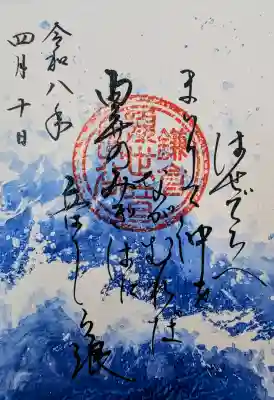 はせでらへ
まいりて沖を
ながむれば
由井のみぎはに
立はしら浪
令和八年
四月十日
鎌倉